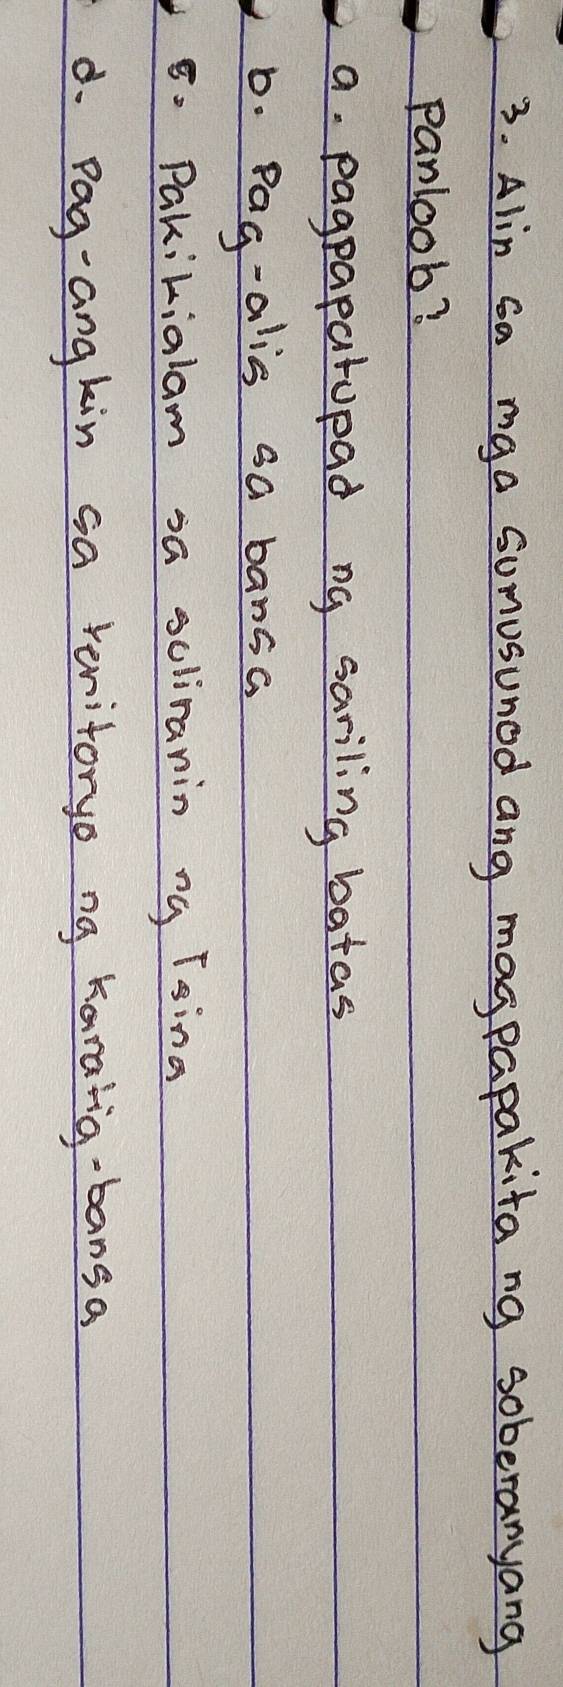 3. Alin sa mga sumusunod ang magpapakita ng soberanyang
panloob?
a. pagpapatupad ng sariling batas
b. Pag-alis sa bansa
c. Pakikialam sa suliranin ng Tsina
d. Pag-angkin sa teritoryo ng karatig-bansa